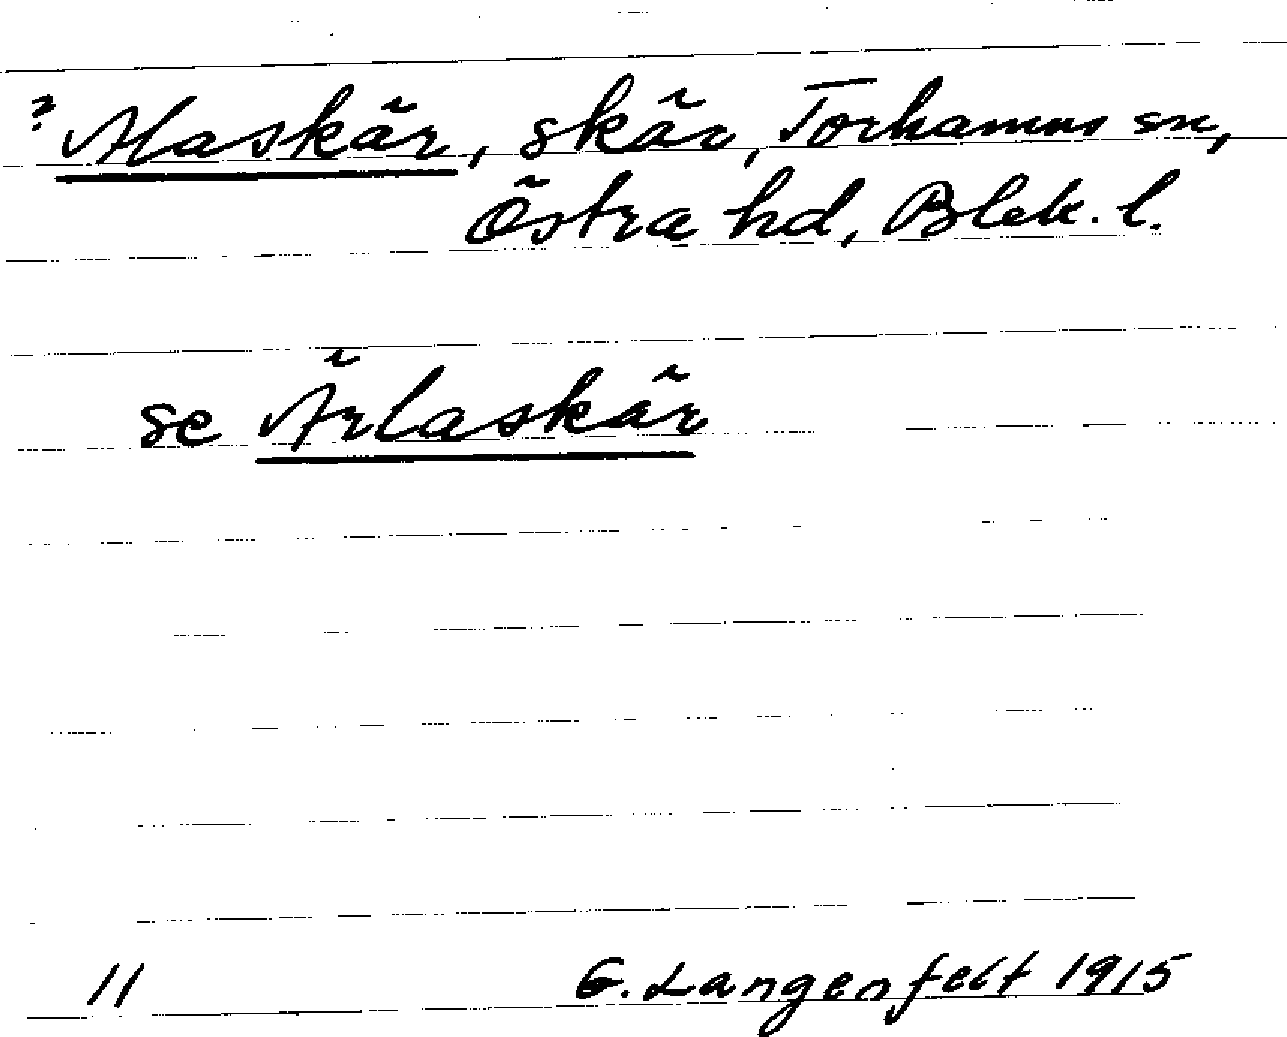 ? Alaskär, skär, Torhamns sn,
Östra hd, Blek. l.
se Ärlaskär
11 G. Langenfelt 1915